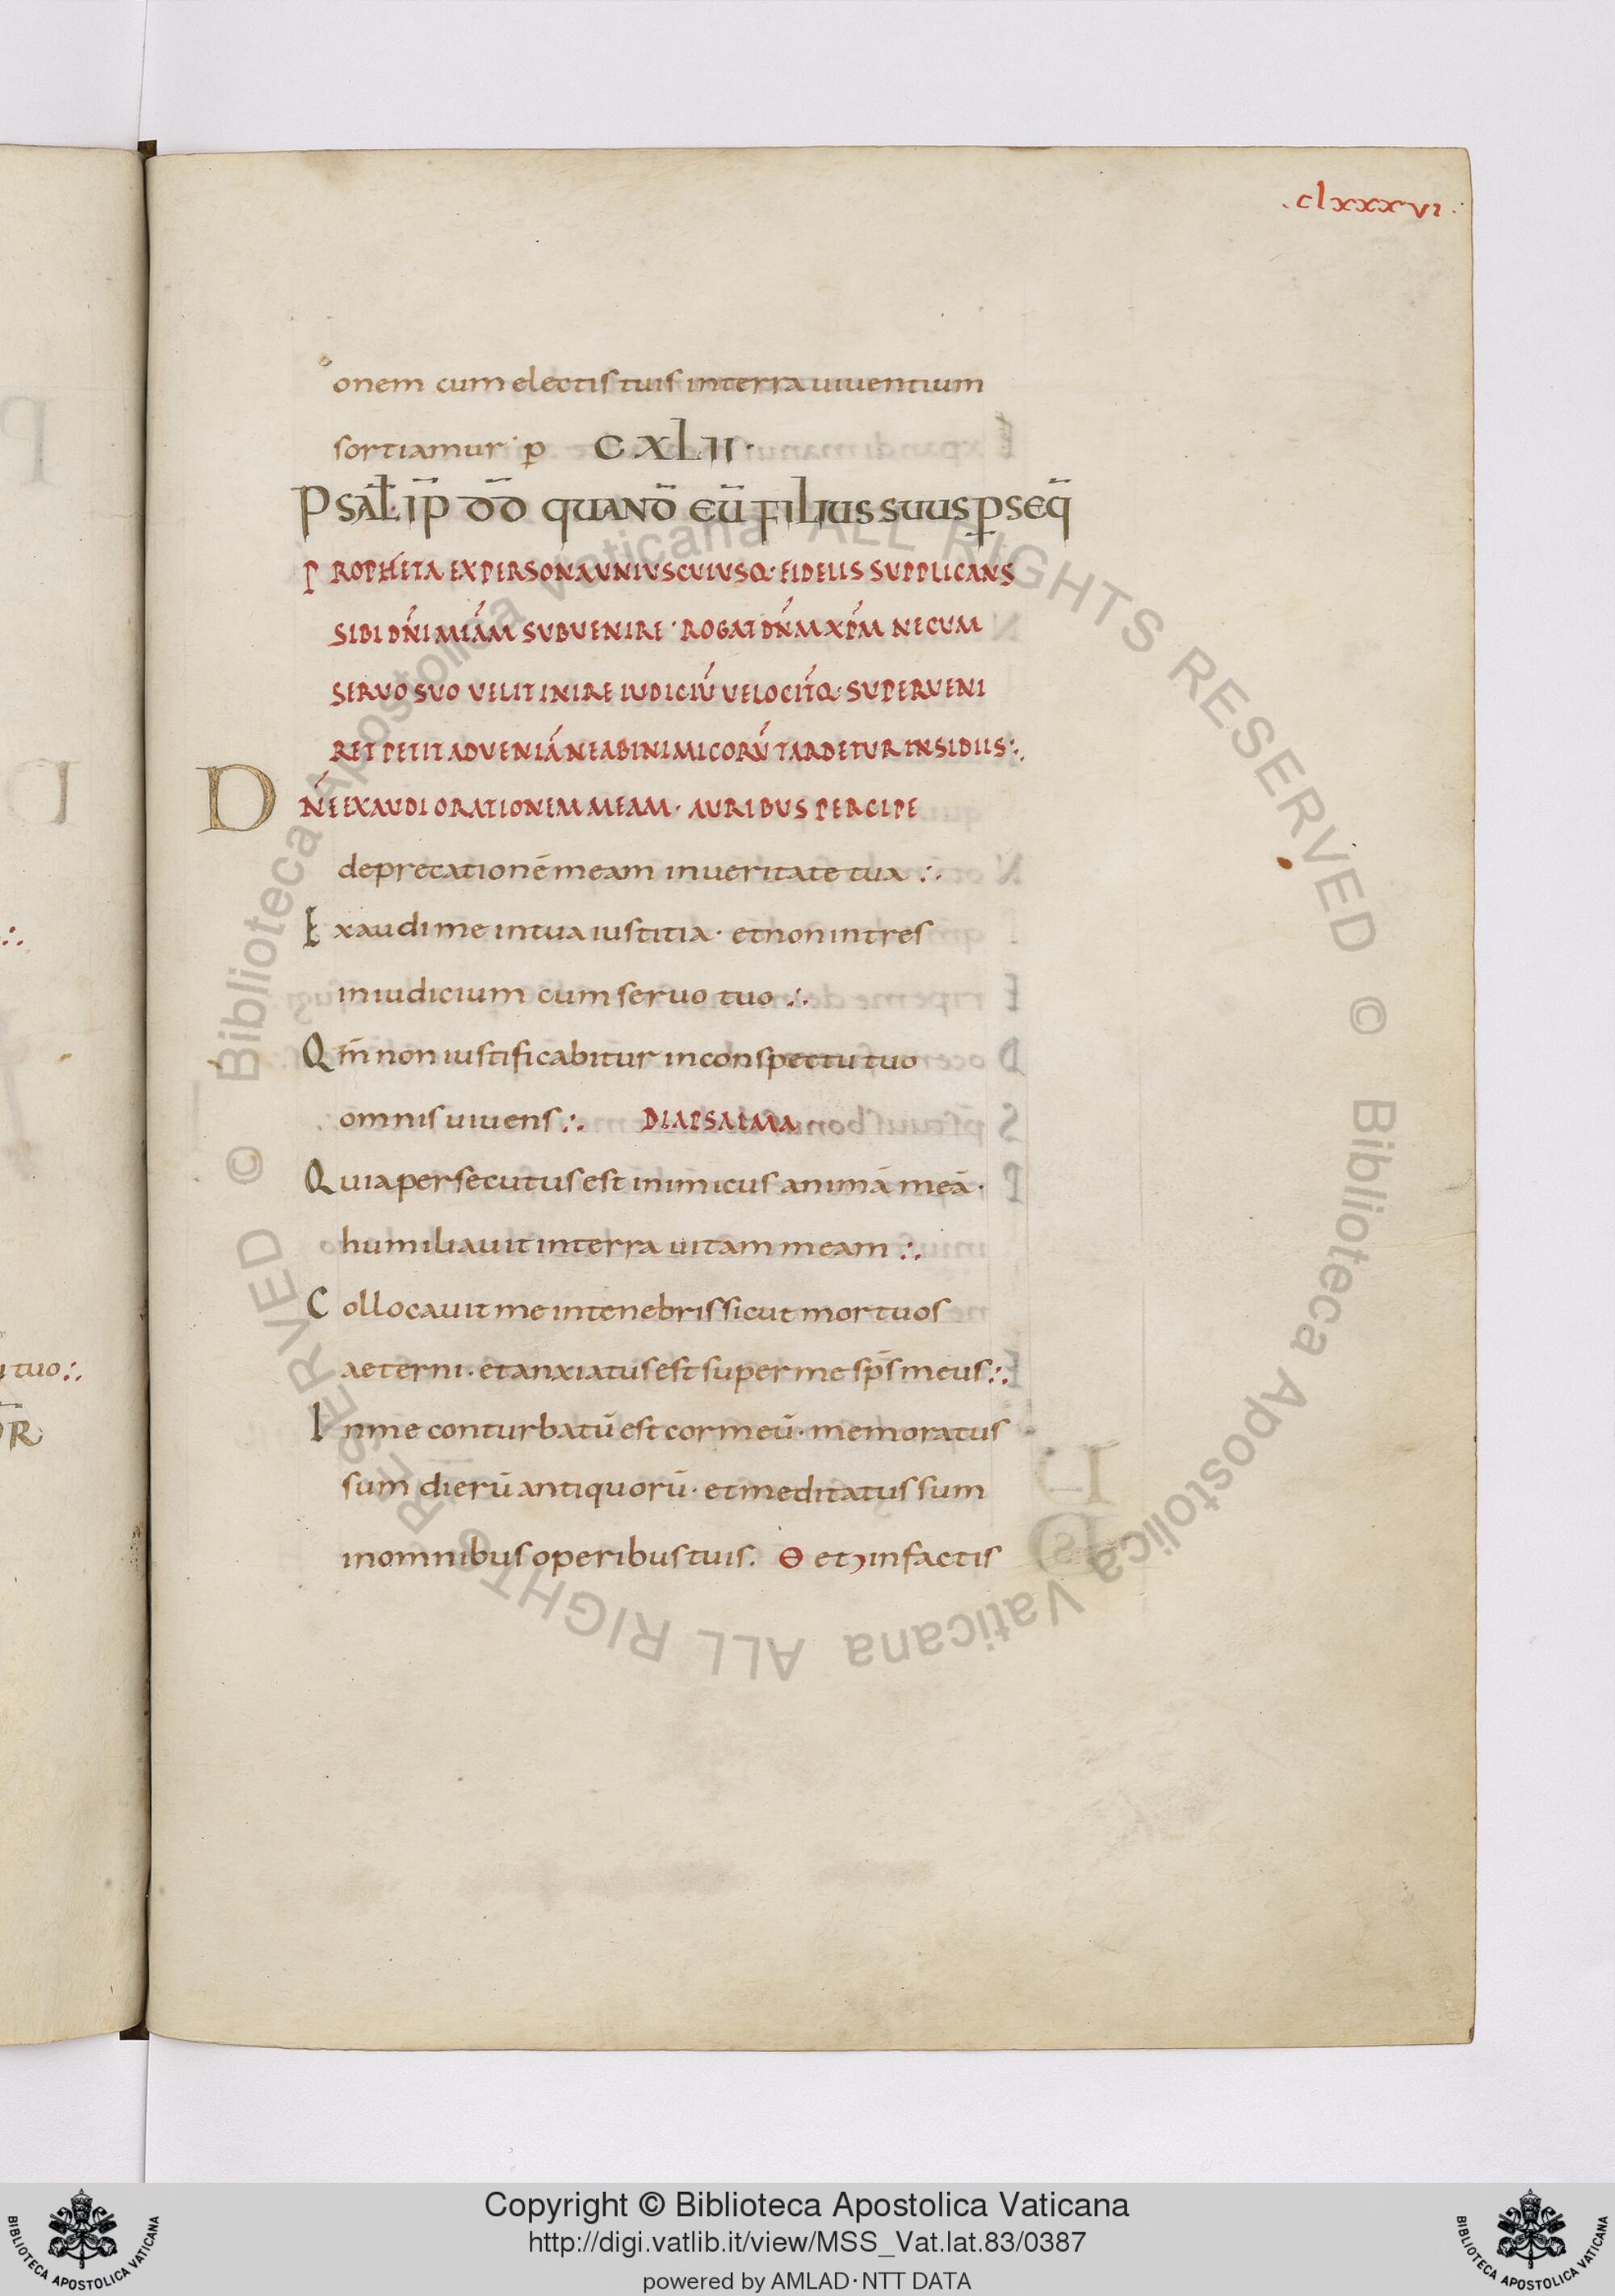 .clxxxvi.
onem cum electis tuis in terra uiuentium
sortiamur· p̄ CXLII·
PSAL̄ IP̄ DD̄ QUAND̄ EŪ FILIUS SUUS P̱SEQ̄
PROPHETA EX PERSONA UNIUSCUIUSQ· FIDELIS SUPPLICANS
SIBI DN̄I MIĀM SUBUENIRE· ROGAT DN̄M XP̄M NE CUM
SERUO SUO UELIT INIRE IUDICIŪ UELOCIT̄Q· SUPERUENI
RET PETIT AD UENIĀ NE AB INIMICORŪ TARDETUR INSIDIIS:.
DN̄E EXAUDI ORATIONEM MEAM· AURIBUS PERCIPE
deprecationē meam in ueritate tua :.
Exaudi me in tua iustitia· et non intres
in iudicium cum seruo tuo :.
Qm̄ non iustificabitur in conspectu tuo
omnis uiuens :. DIAPSALMA
Quia persecutus est inimicus animā meā·
humiliauit in terra uitam meam :.
Collocauit me in tenebris sicut mortuos
aeterni· et anxiatus est super me sp̄s meus:.
In me conturbatū est cor meū· memoratus
sum dierū antiquorū· et meditatus sum
in omnibus operibus tuis. Θ et in factis
y tuo:.
R
Copyright © Biblioteca Apostolica Vaticana
http://digi.vatlib.it/view/MSS_Vat.lat.83/0387
powered by AMLAD·NTT DATA
BIBLIOTECA APOSTOLICA VATICANA
BIBLIOTECA APOSTOLICA VATICANA
© Biblioteca Apostolica Vaticana ALL RIGHTS RESERVED
© Biblioteca Apostolica Vaticana ALL RIGHTS RESERVED